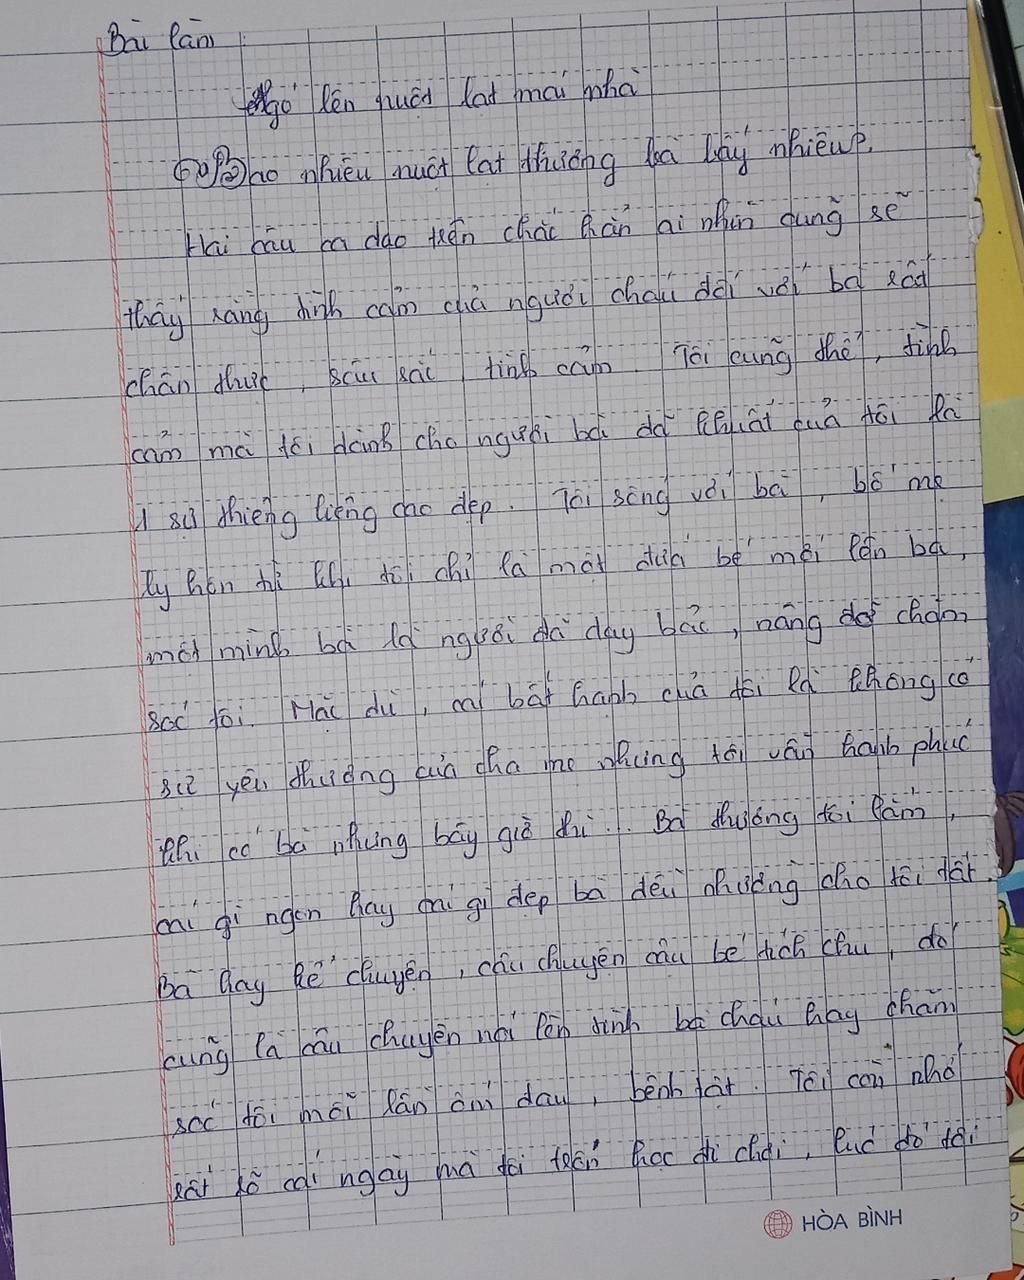 Bài làm
Ngó lên nuột lạt mái nhà
Bao nhiêu nuột lạt thương bà bấy nhiêu.
Hai câu ca dao trên chắc hẳn ai nhìn cũng sẽ
thấy rằng tình cảm của người cháu đối với bà rất
chân thực, sâu sắc, tình cảm. Tôi cũng thế, tình
cảm mà tôi dành cho người bà đã khuất của tôi là
1 sự thiêng liêng cao đẹp. Tôi sống với bà, bố mẹ
ly hôn từ khi tôi chỉ là một đứa bé mới lên ba,
một mình bà là người đã dạy bảo, nâng đỡ chăm
sóc tôi. Mặc dù, cái bất hạnh của tôi là không có
sự yêu thương của cha mẹ nhưng tôi vẫn hạnh phúc
khi có bà nhưng bây giờ thì... Bà thương tôi lắm,
cái gì ngon hay cái gì đẹp bà đều nhường cho tôi tất.
Bà hay kể chuyện, câu chuyện cậu bé tích chu, đó
cũng là câu chuyện nói lên tình bà cháu hay chăm
sóc tôi mỗi lần ốm đau, bệnh tật. Tôi còn nhớ
rất rõ cái ngày mà tôi trốn học đi chơi, lúc đó tôi
HÒA BÌNH